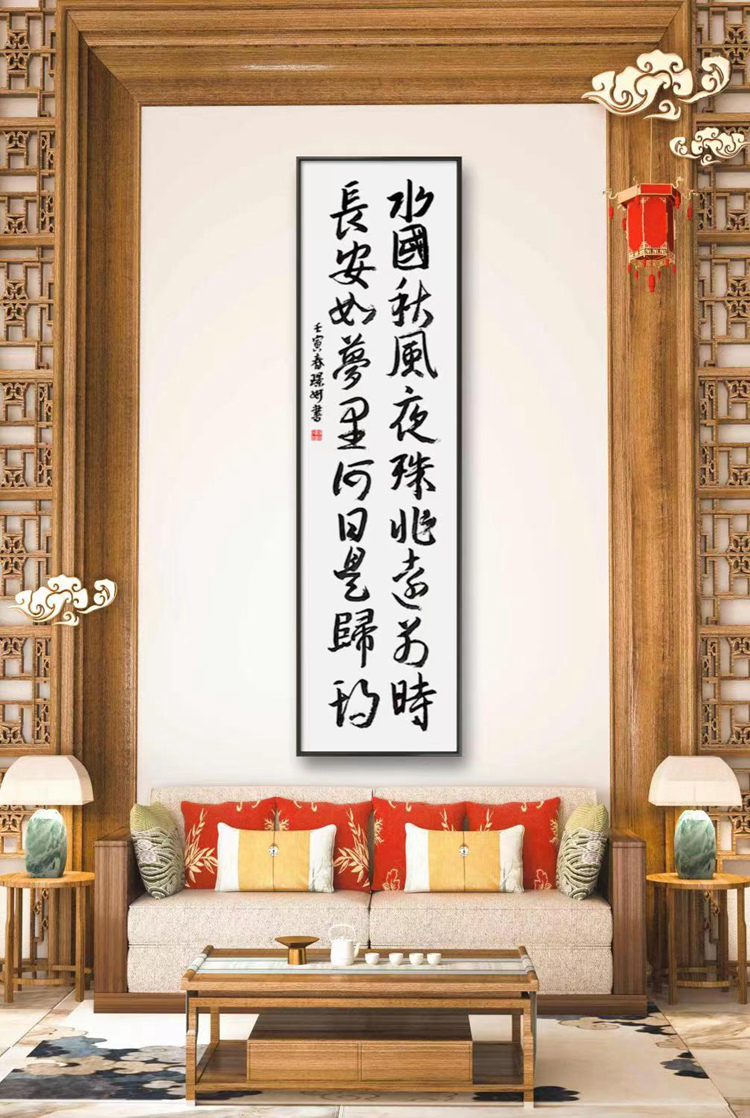 水國秋風夜殊非遠別時
長安如夢里何日是歸期
壬寅春璟書